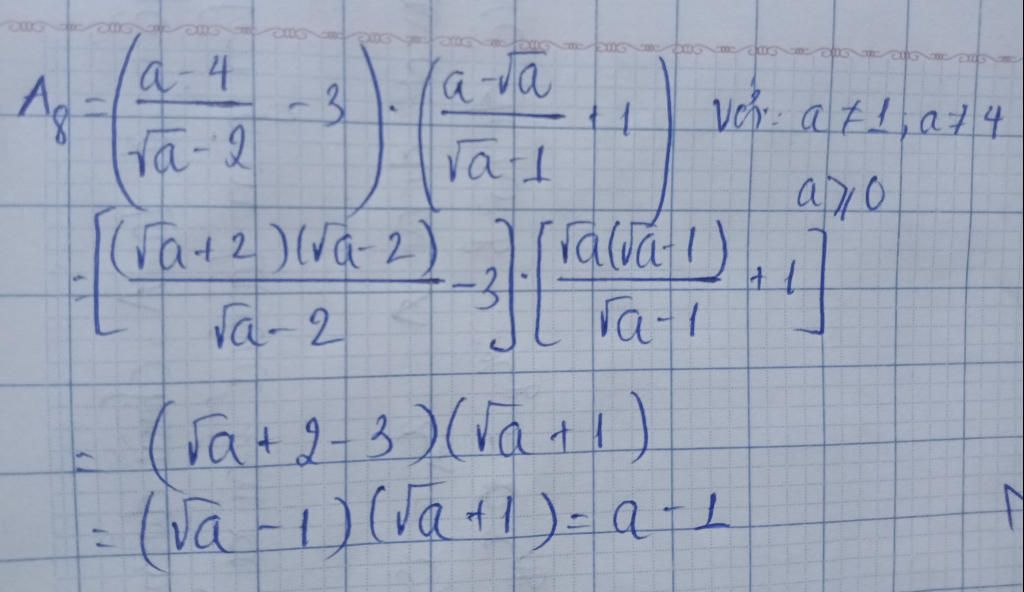 A₈ = ((a - 4)/(√a - 2) - 3) · ((a - √a)/(√a - 1) + 1) với: a ≠ 1, a ≠ 4
a ⩾ 0
= [((√a + 2)(√a - 2))/(√a - 2) - 3] · [(√a(√a - 1))/(√a - 1) + 1]
= (√a + 2 - 3)(√a + 1)
= (√a - 1)(√a + 1) = a - 1